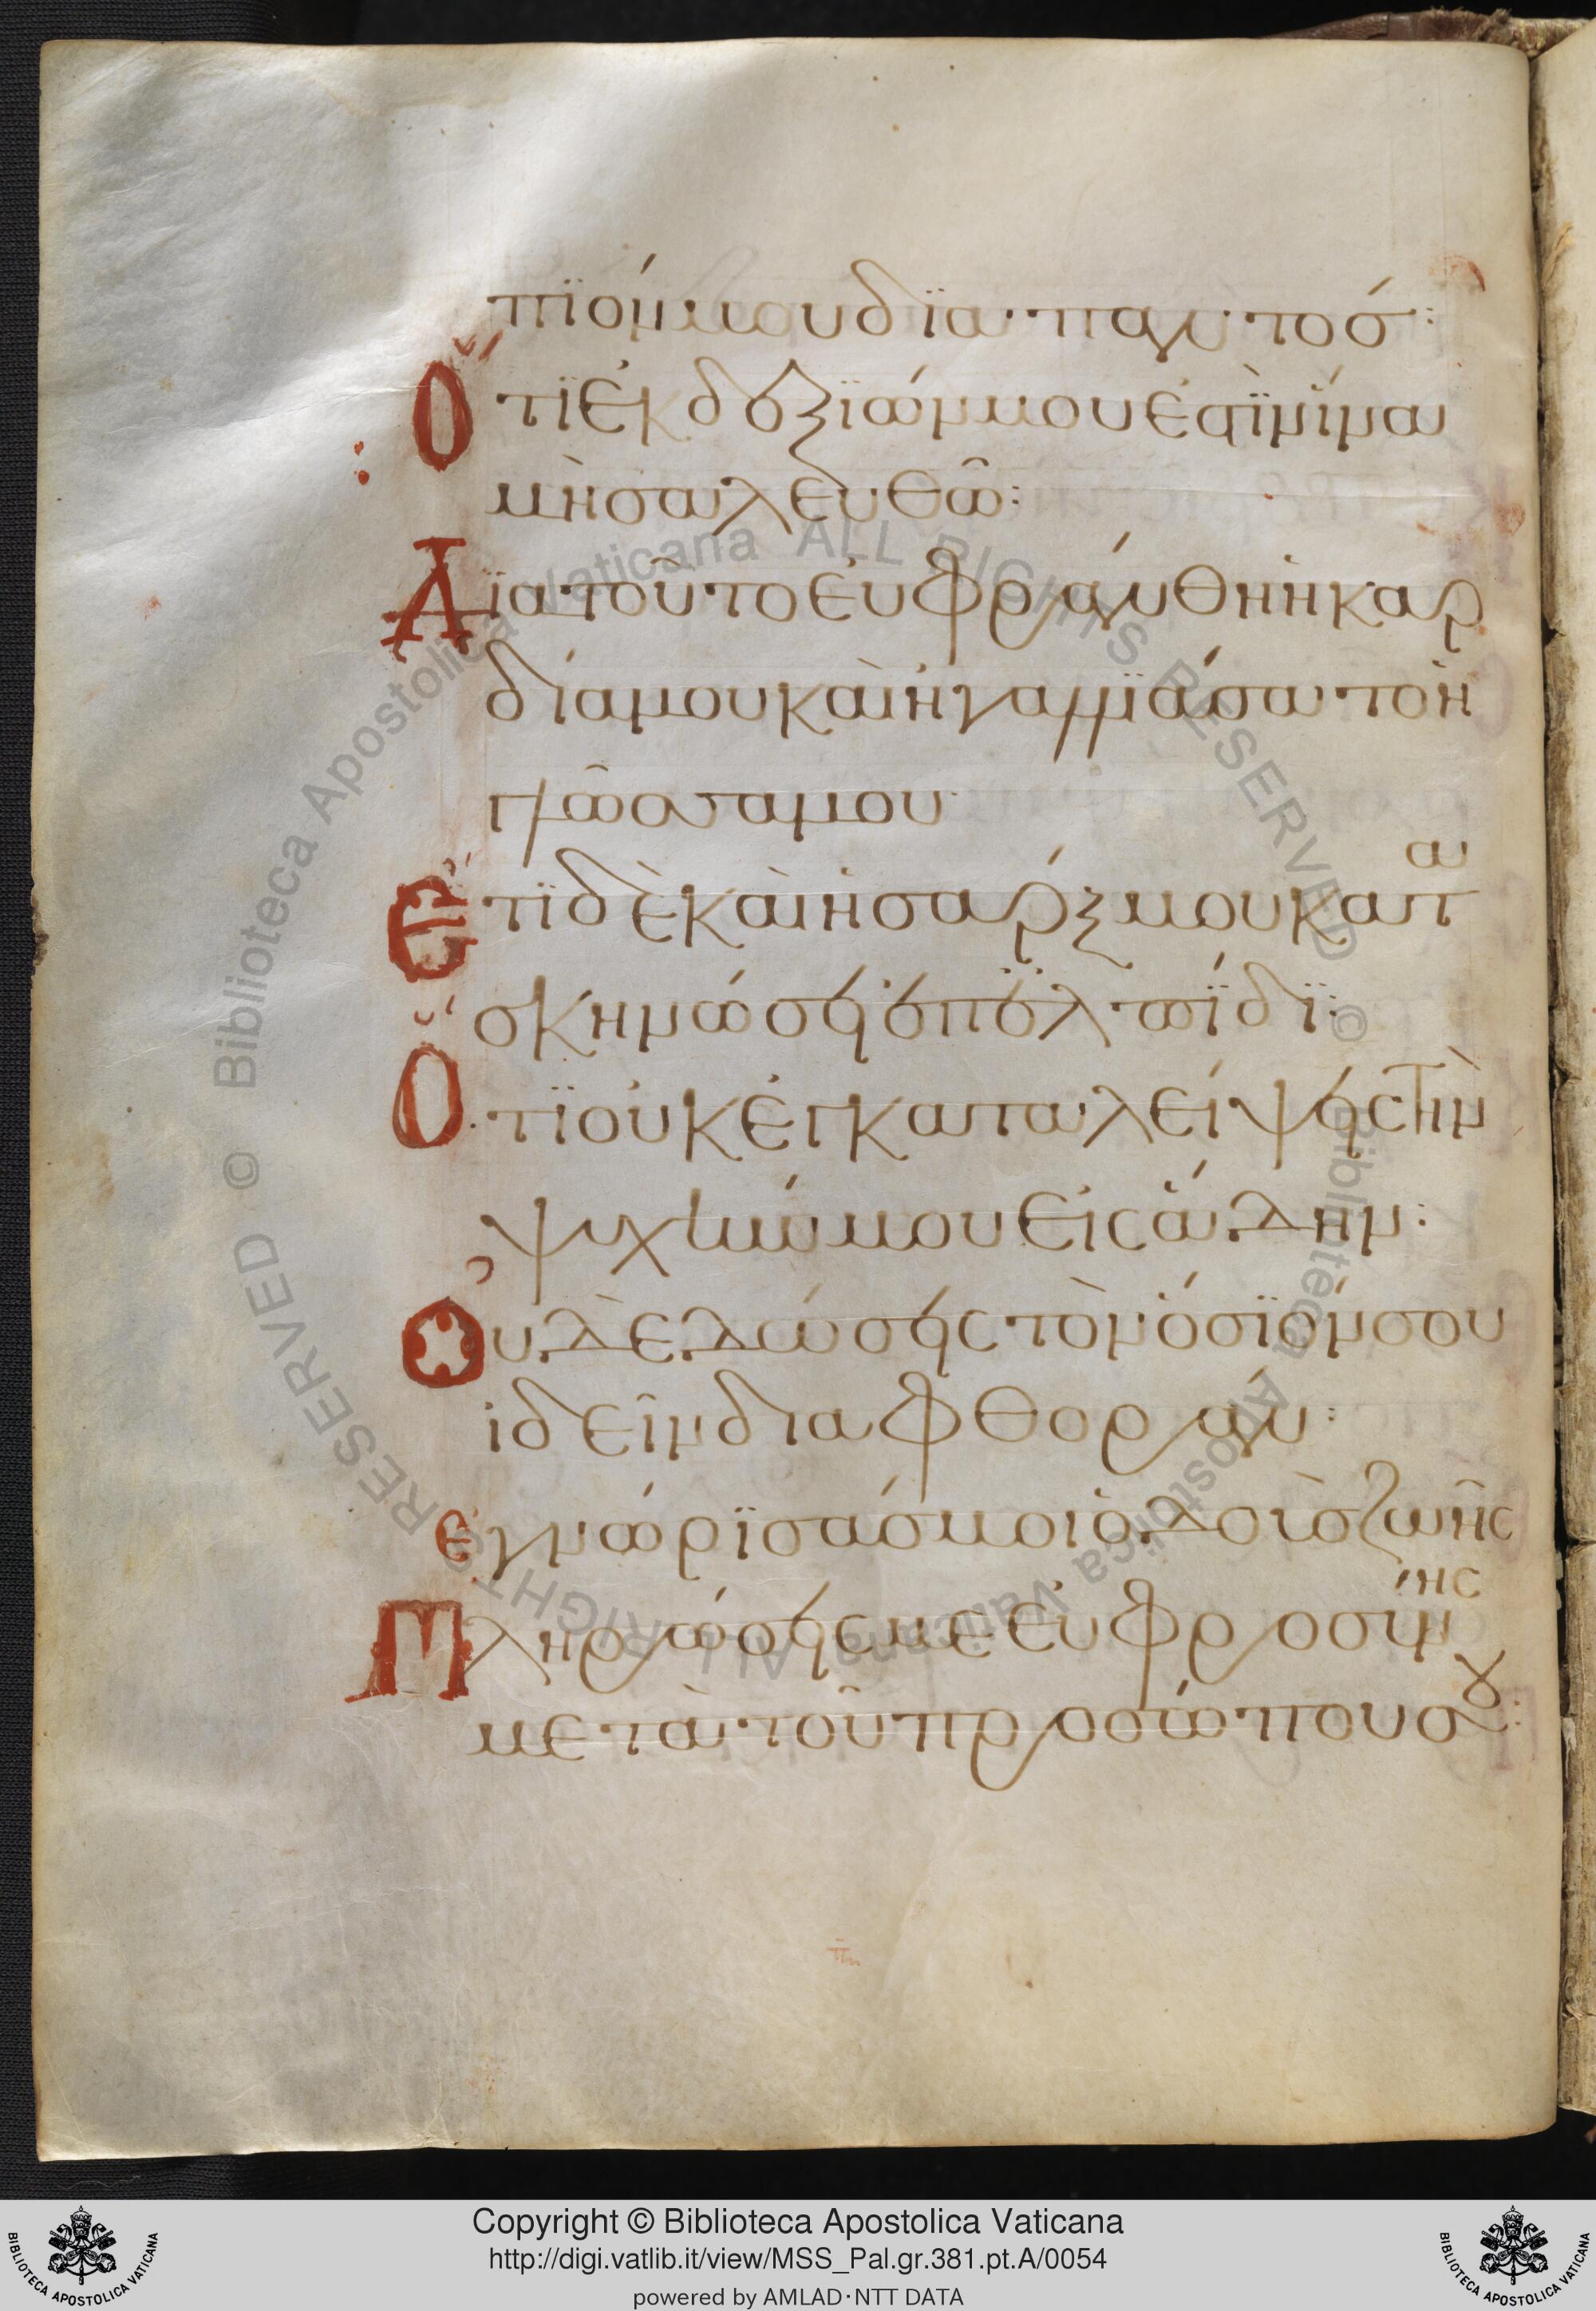 πϊόν μου δϊαπαντόσ:
Ὅτϊ ἐκ δεξϊών μου ἐστὶν ἵνα
μὴ σαλευθῶ:
Δϊατοῦτο ἐυφράνθη ἡ καρ
δία μου καὶ ἠγαλλϊάσατο ἡ
γλῶσσα μου
Ἔτϊ δὲ καὶ ἡ σάρξ μου κατα
σκηνώσει ἐπ' ἐλπίδϊ:
Ὅτϊ οὐκ ἐγκαταλείψεις τὴν
ψυχήν μου εἰς ἅδην:
Οὐδὲ δώσεις τὸν ὅσϊόν σου
ἰδεῖν διαφθοράν:
ἐγνώρϊσάσ μοι ὁδοὺσ ζωῆς
Πληρώσεις με ἐυφροσύνης
μετὰ τοῦ προσώπου σου:
Copyright © Biblioteca Apostolica Vaticana
http://digi.vatlib.it/view/MSS_Pal.gr.381.pt.A/0054
powered by AMLAD·NTT DATA
BIBLIOTECA APOSTOLICA VATICANA
BIBLIOTECA APOSTOLICA VATICANA
© Biblioteca Apostolica Vaticana ALL RIGHTS RESERVED © Biblioteca Apostolica Vaticana ALL RIGHTS RESERVED